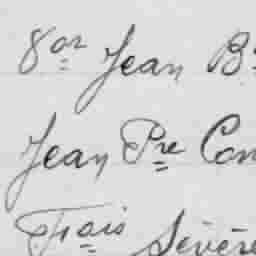 8or Jean Bt
Jean Pre Con
Frais Sévère